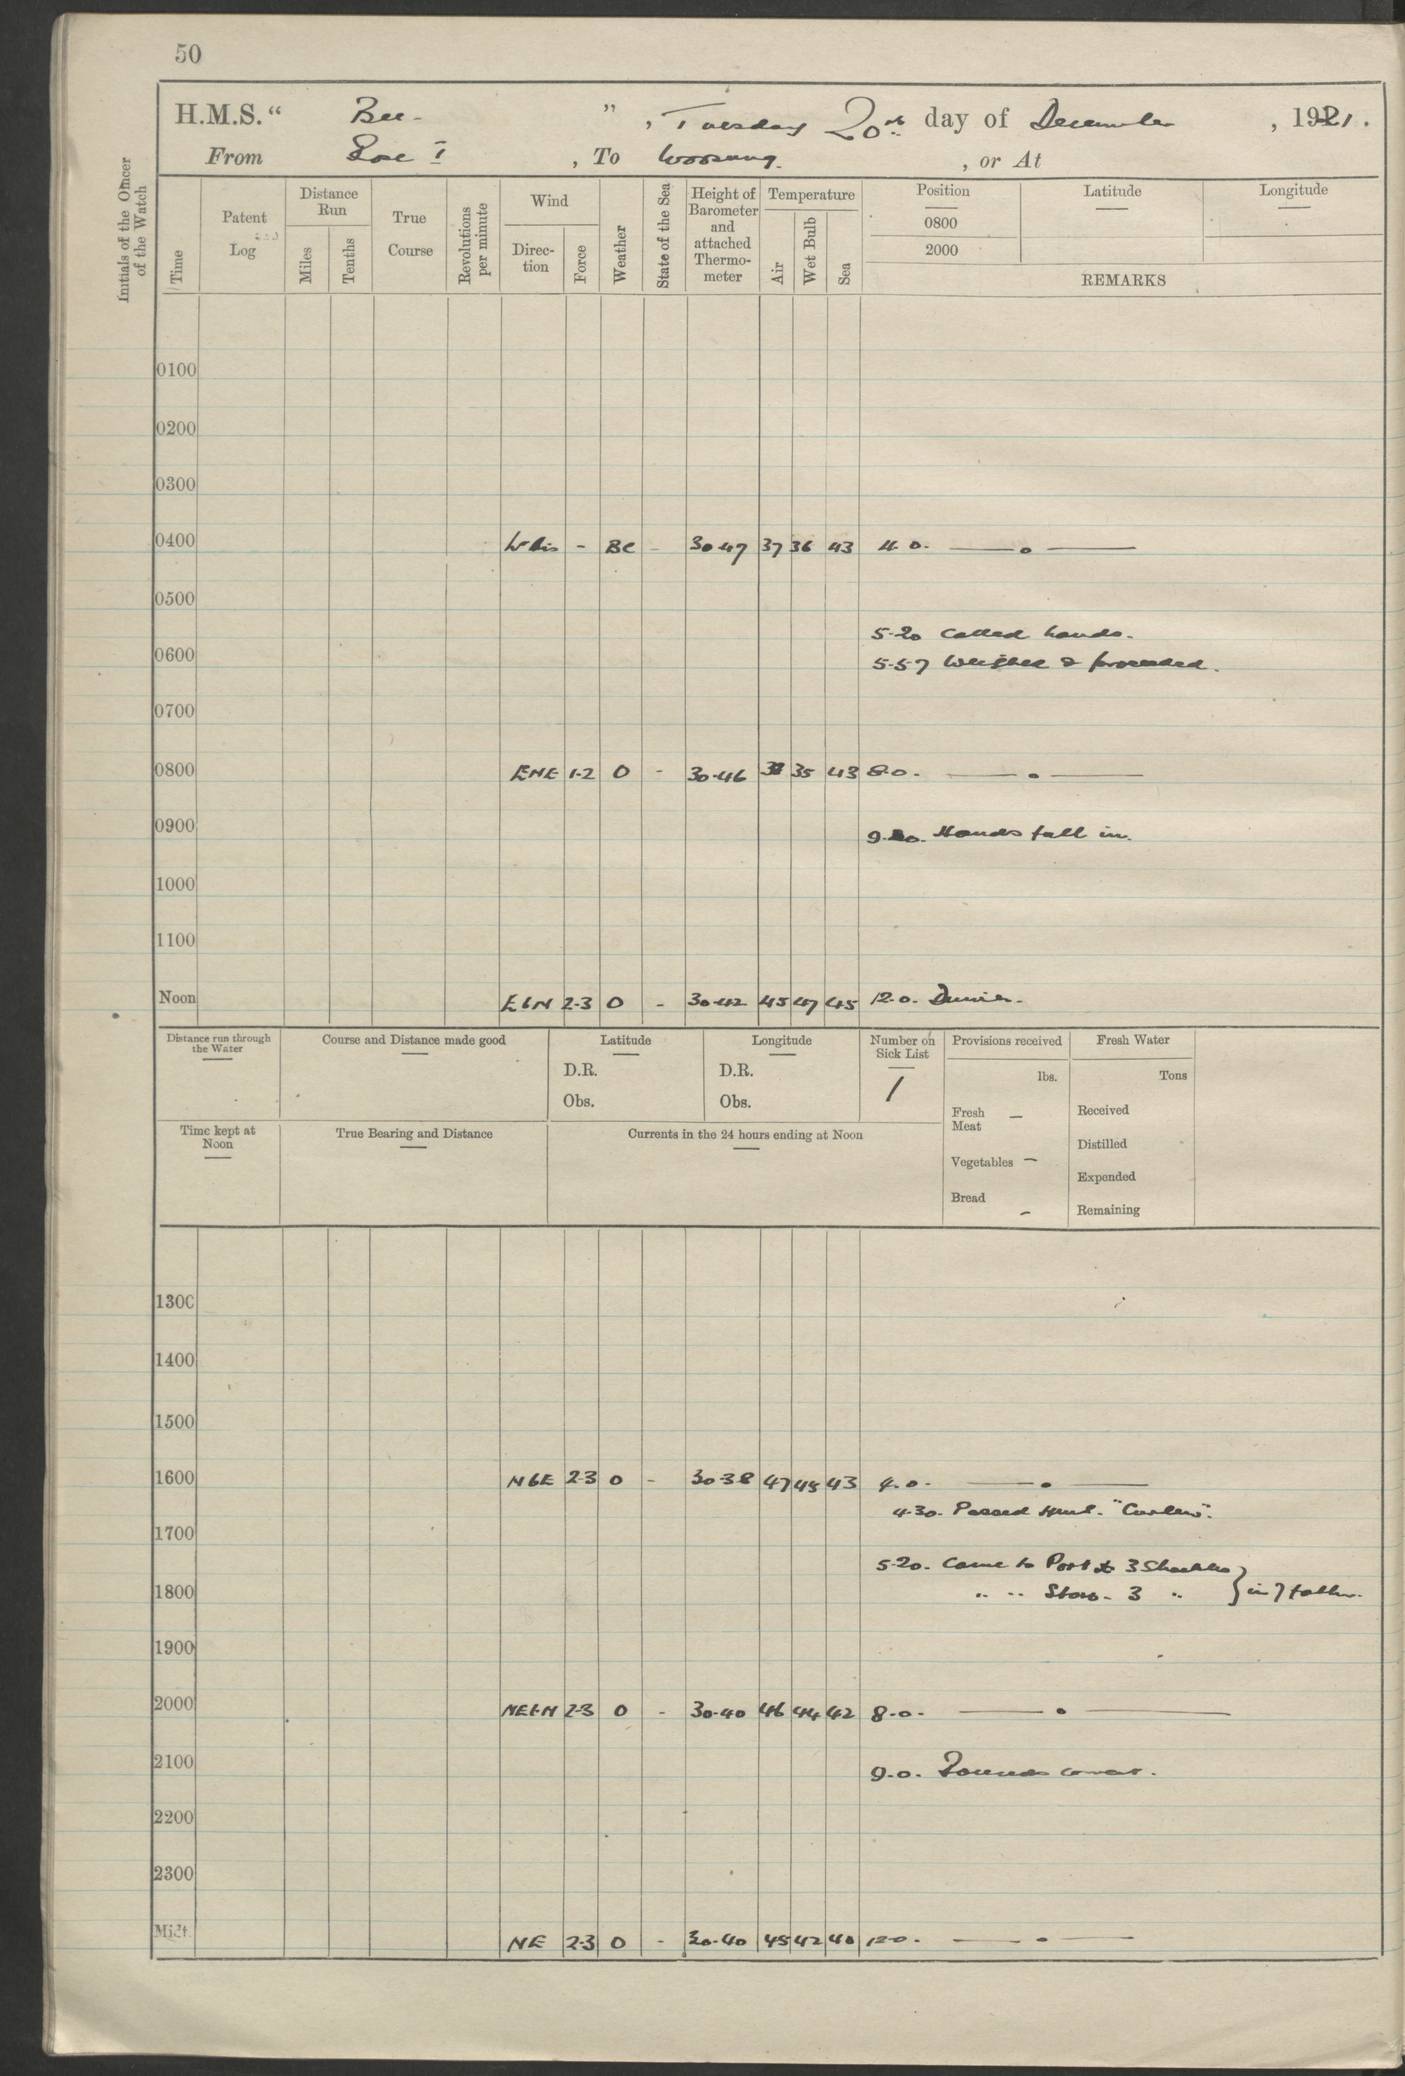 50
H.M.S. “ Bee. ”, Tuesday 20th day of December, 1921.
From I, To Woosung., or At
Initials of the Officer of the Watch
Time
Patent Log
Distance Run
Miles
Tenths
True Course
Revolutions per minute
Wind
Direc-tion
Force
Weather
State of the Sea
Height of Barometer and attached Thermo-meter
Temperature
Air
Wet Bulb
Sea
Position
0800
2000
Latitude
Longitude
REMARKS
0100
0200
0300
0400 - BC - 30.47 37 36 43 4.0. —— o ——
0500
5.20 Called hands.
0600
5.57 Weighed & proceeded.
0700
0800 ENE 1-2 O - 30.46 35 43 8.0. —— . ——
0900
Hands fall in.
1000
1100
Noon EbN 2-3 O - 30.42 45 47 45 12.0. Dinner.
Distance run through the Water
Course and Distance made good
Latitude
D.R.
Obs.
Longitude
D.R.
Obs.
Number on Sick List
1
Provisions received
lbs.
Fresh Meat —
Vegetables —
Bread -
Fresh Water
Tons
Received
Distilled
Expended
Remaining
Time kept at Noon
True Bearing and Distance
Currents in the 24 hours ending at Noon
1300
1400
1500
1600 NbE 2-3 O - 30.38 47 45 43 4.0. —— . ——
4.30. Passed H.M.S. "Curlew".
1700
5.20. Came to Port to 3 Shackles
1800
" " Starb. 3 " } in 7 fathm.
1900
2000 NEbN 2-3 O - 30.40 46 44 42 8.0. —— . ——
2100
9.0. Rounds correct.
2200
2300
Midt. NE 2-3 O - 30.40 45 42 40 12.0. —— . ——